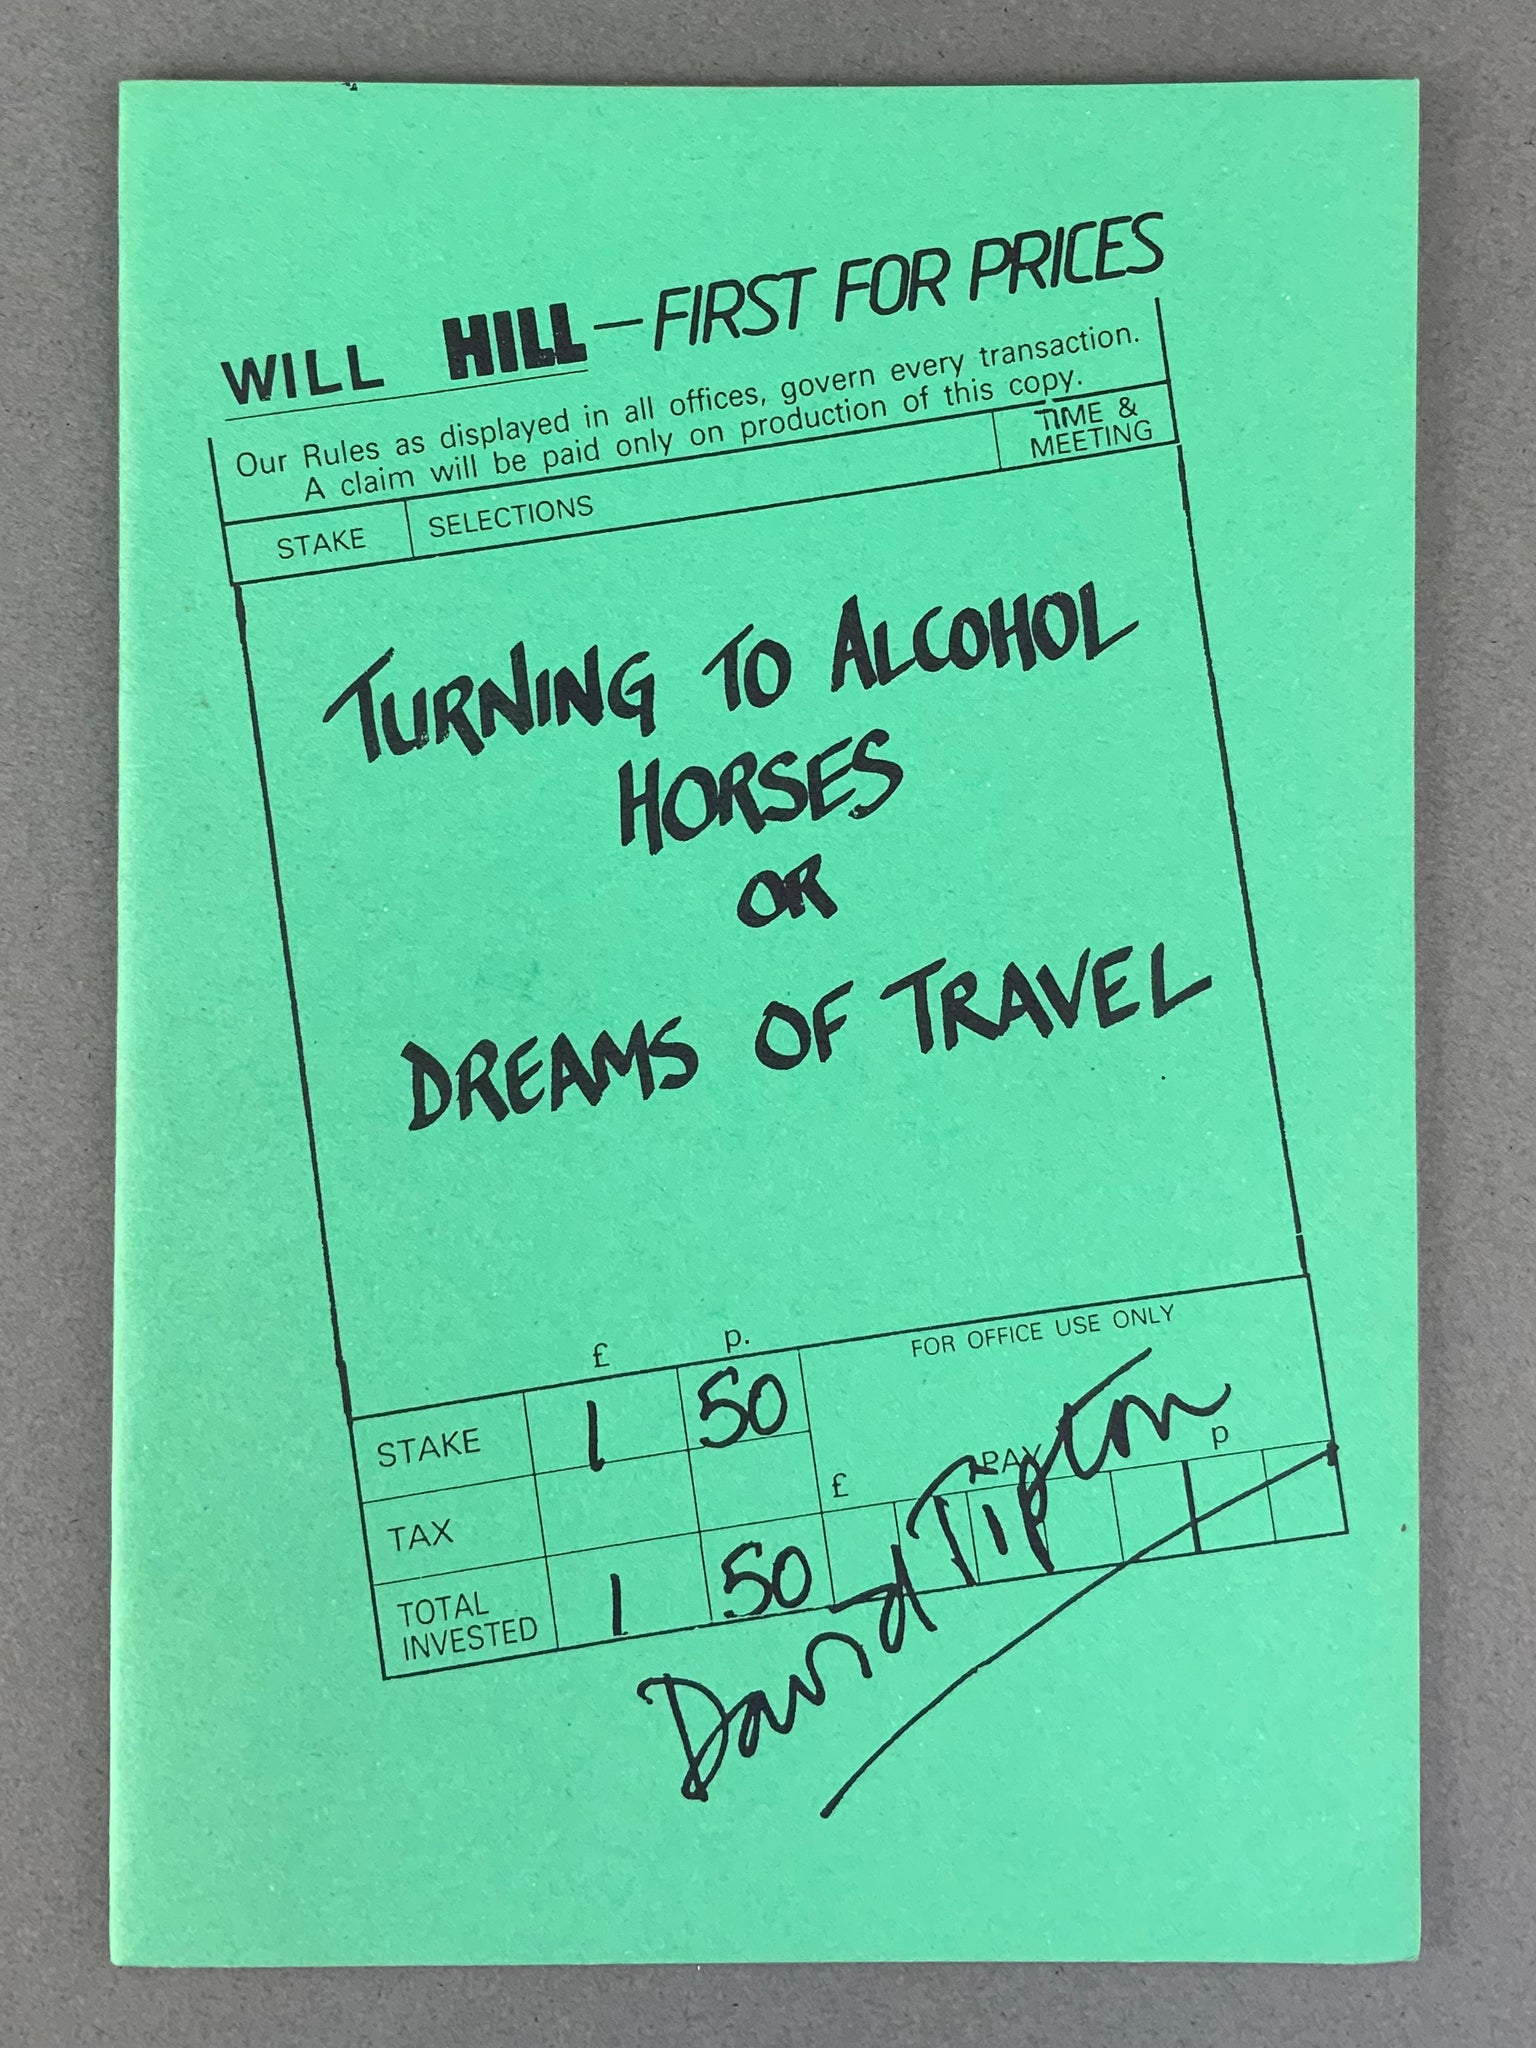 WILL HILL — FIRST FOR PRICES
Our Rules as displayed in all offices, govern every transaction.
A claim will be paid only on production of this copy.
STAKE SELECTIONS TIME &
MEETING
TURNING TO ALCOHOL
HORSES
OR
DREAMS OF TRAVEL
£ p. FOR OFFICE USE ONLY
STAKE 1 50
£ PAY p
TAX
TOTAL
INVESTED 1 50
David Tipton